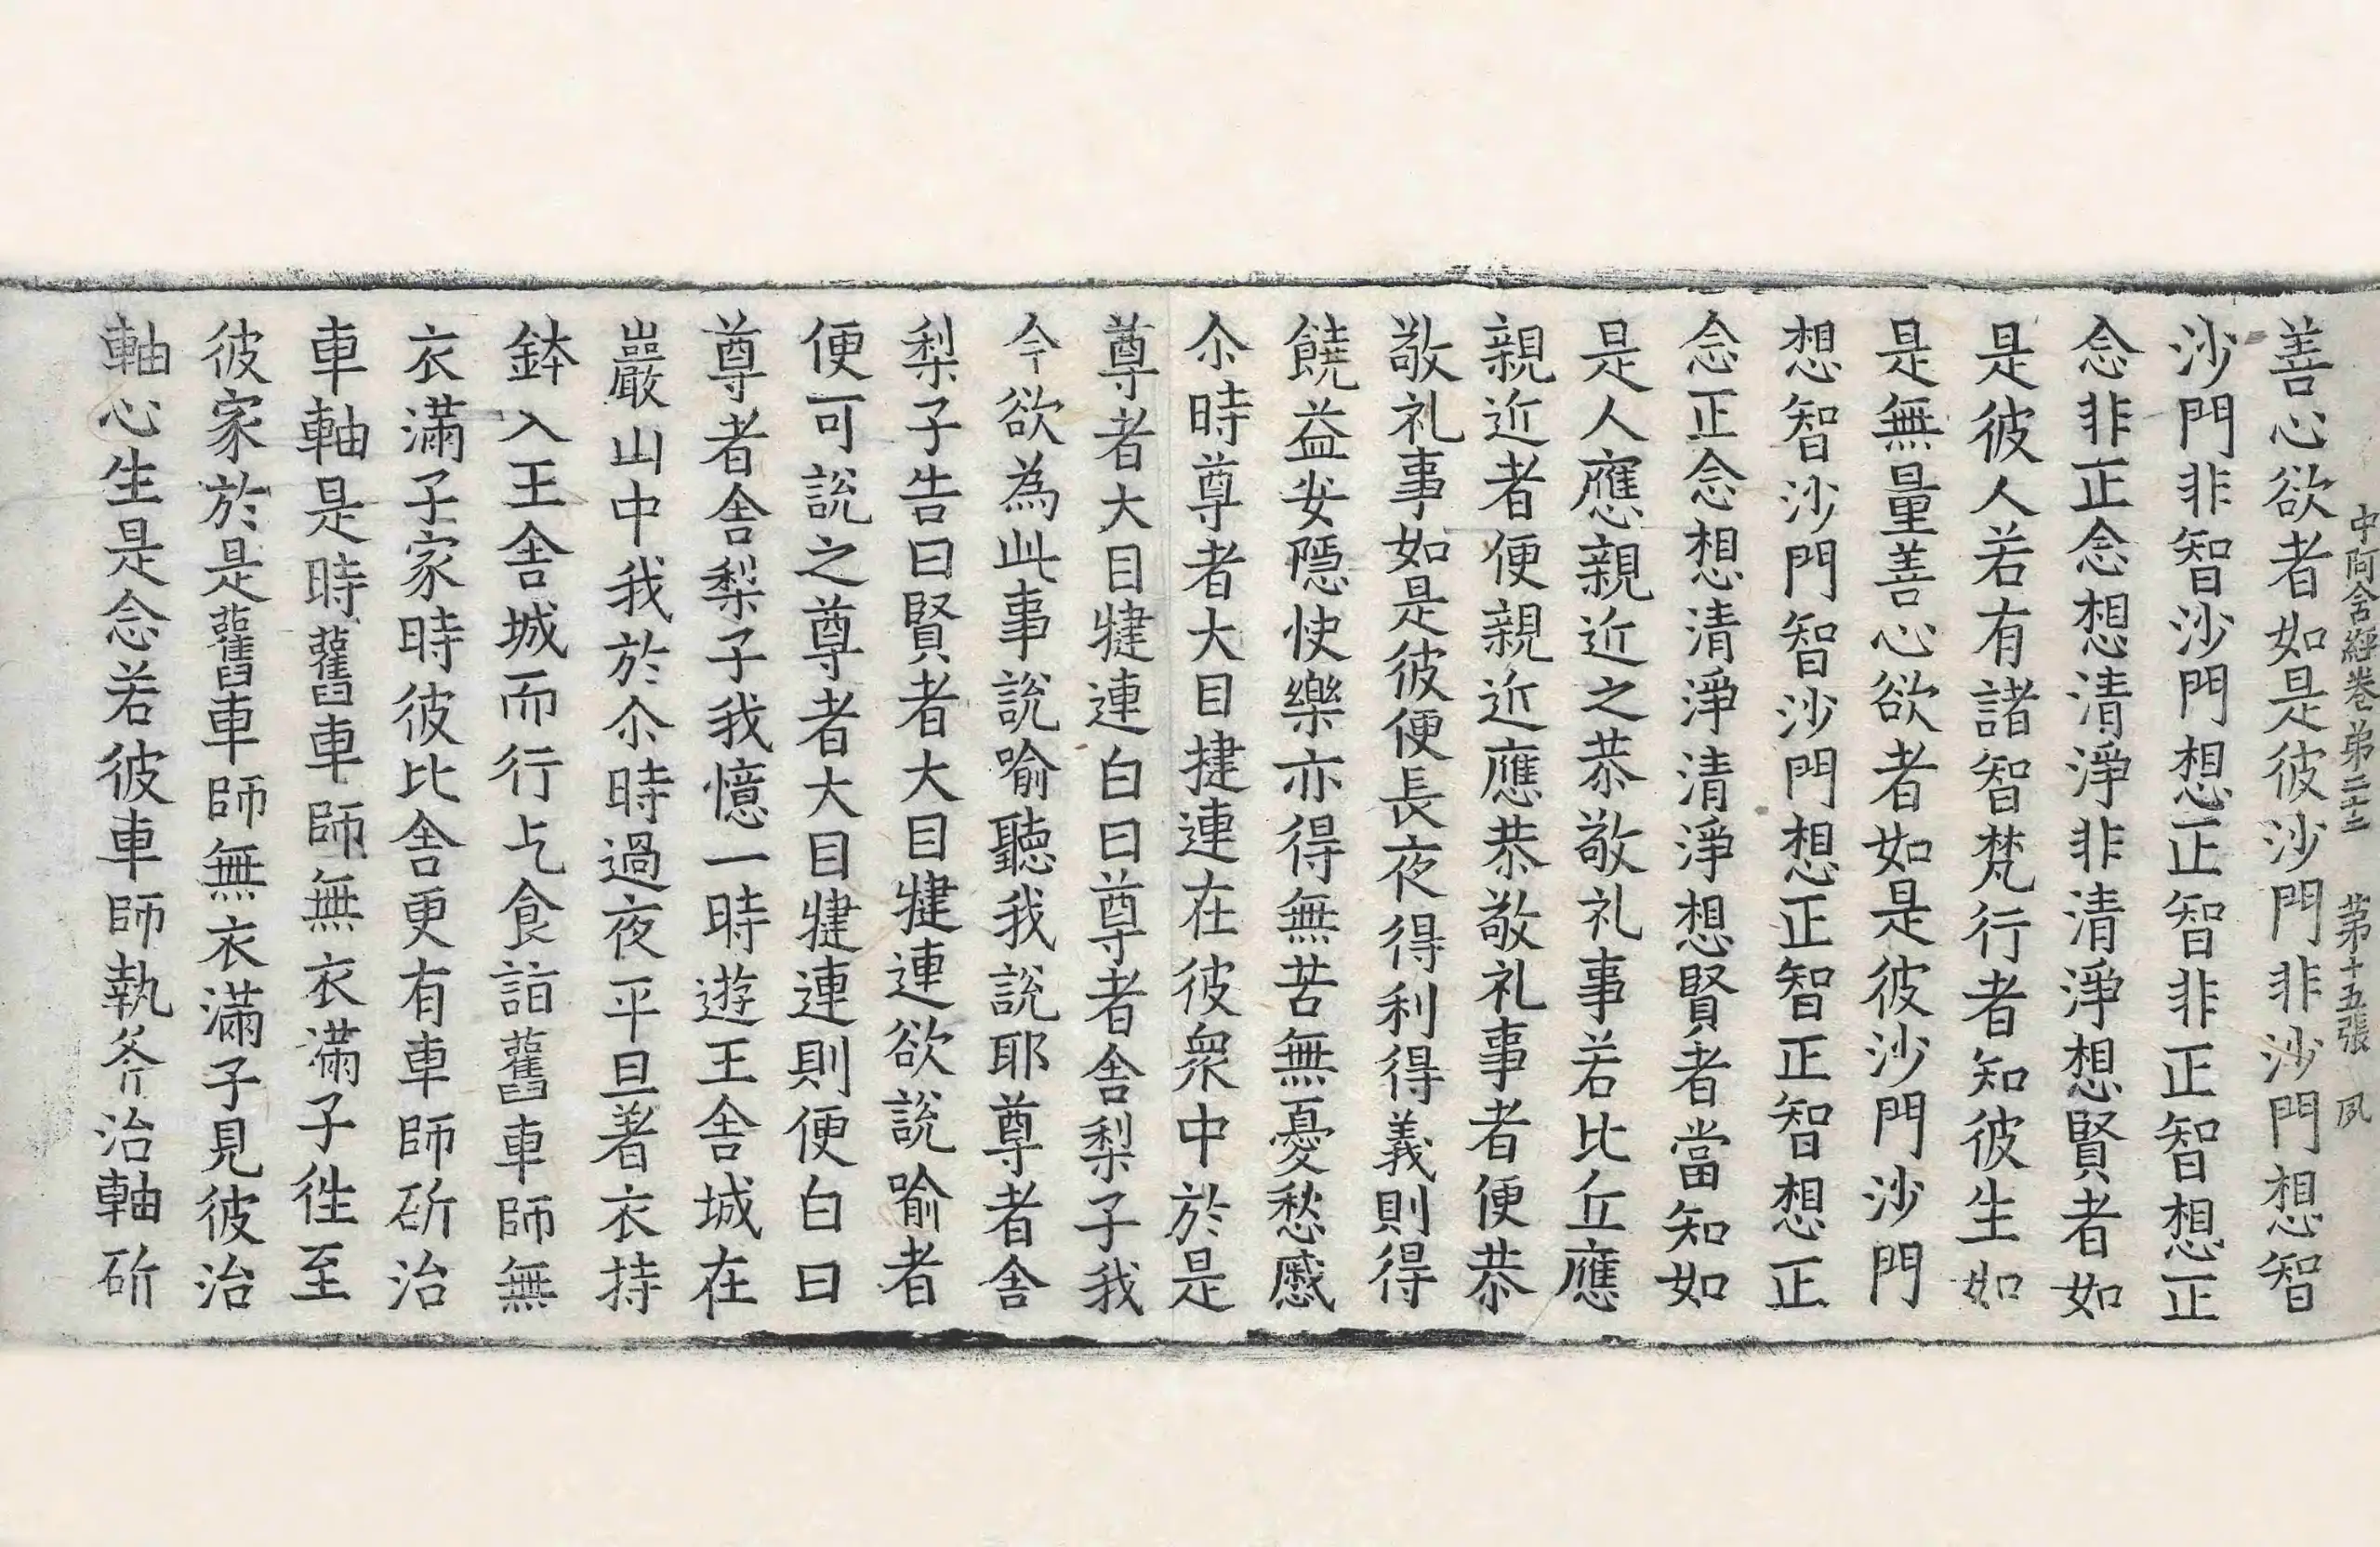 中阿含經卷第二十二　第十五張　夙
善心欲者如是彼沙門非沙門想智
沙門非智沙門想正智非正智想正
念非正念想清淨非清淨想賢者如
是彼人若有諸智梵行者知彼生如
是無量善心欲者如是彼沙門沙門
想智沙門智沙門想正智正智想正
念正念想清淨清淨想賢者當知如
是人應親近之恭敬礼事若比丘應
親近者便親近應恭敬礼事者便恭
敬礼事如是彼便長夜得利得義則得
饒益安隱快樂亦得無苦無憂愁慼
尒時尊者大目揵連在彼衆中於是
尊者大目犍連白曰尊者舍梨子我
今欲為此事說喻聽我說耶尊者舍
梨子告曰賢者大目犍連欲說喻者
便可說之尊者大目犍連則便白曰
尊者舍梨子我憶一時遊王舍城在
巖山中我於尒時過夜平旦著衣持
鉢入王舍城而行乞食詣舊車師無
衣滿子家時彼比舍更有車師斫治
車軸是時舊車師無衣滿子徃至
彼家於是舊車師無衣滿子見彼治
軸心生是念若彼車師執斧治軸斫